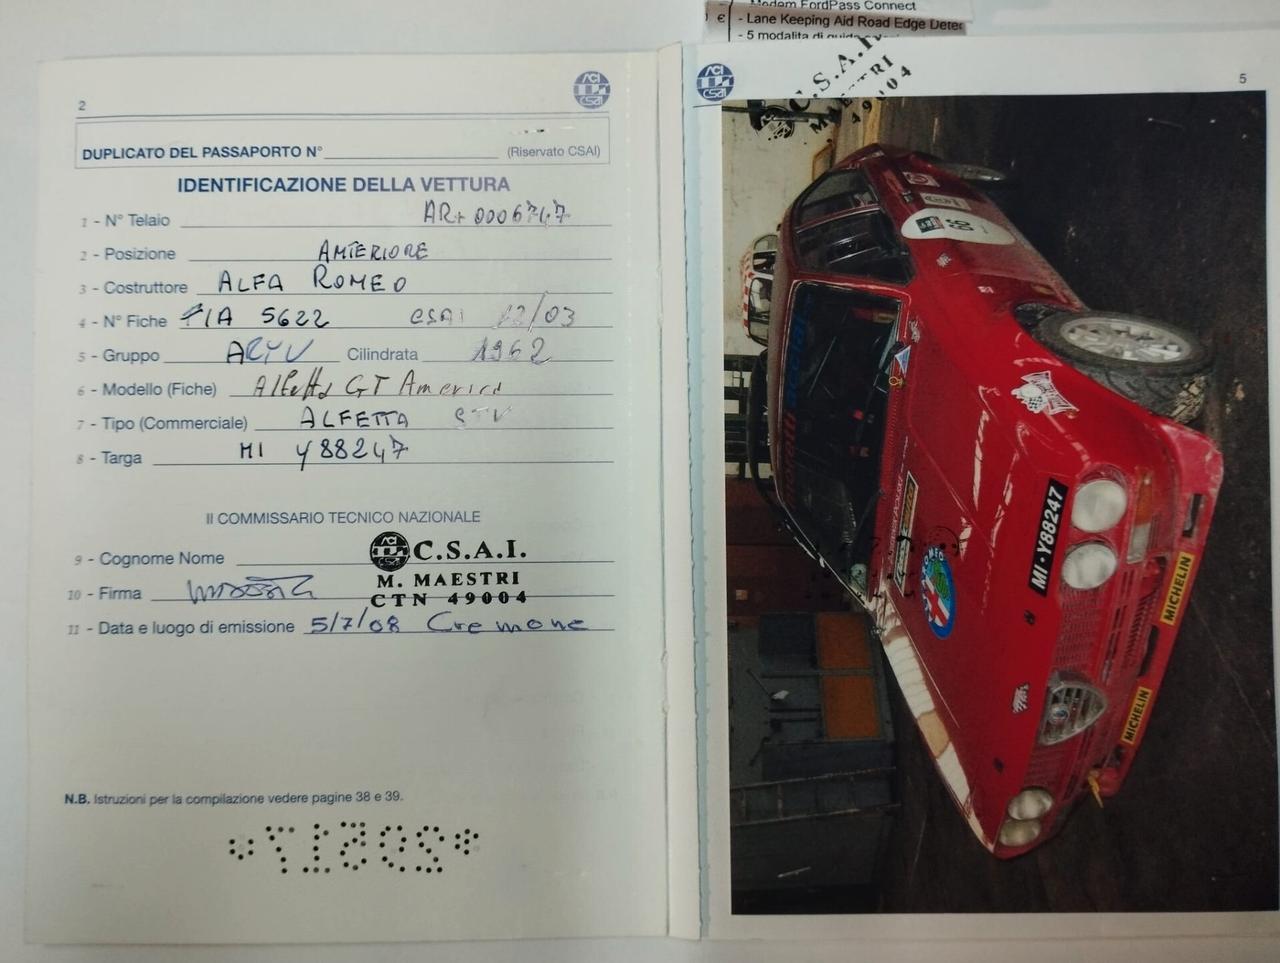 Modem FordPass Connect
€ - Lane Keeping Aid Road Edge Detec
- 5 modalita di guida
2
ACI
CSAI
DUPLICATO DEL PASSAPORTO N° (Riservato CSAI)
IDENTIFICAZIONE DELLA VETTURA
1 - N° Telaio AR* 0006747
2 - Posizione ANTERIORE
3 - Costruttore ALFA ROMEO
4 - N° Fiche FIA 5622 CSAI 12/03
5 - Gruppo Cilindrata 1962
6 - Modello (Fiche) Alfetta GT America
7 - Tipo (Commerciale) ALFETTA GTV
8 - Targa MI Y88247
Il COMMISSARIO TECNICO NAZIONALE
9 - Cognome Nome
ACI CSAI C.S.A.I.
M. MAESTRI
CTN 49004
10 - Firma
11 - Data e luogo di emissione 5/7/08 Cremone
N.B. Istruzioni per la compilazione vedere pagine 38 e 39.
ACI
CSAI
C.S.A.I.
MAESTRI
49004
5
66
MI·Y88247
MICHELIN
MICHELIN